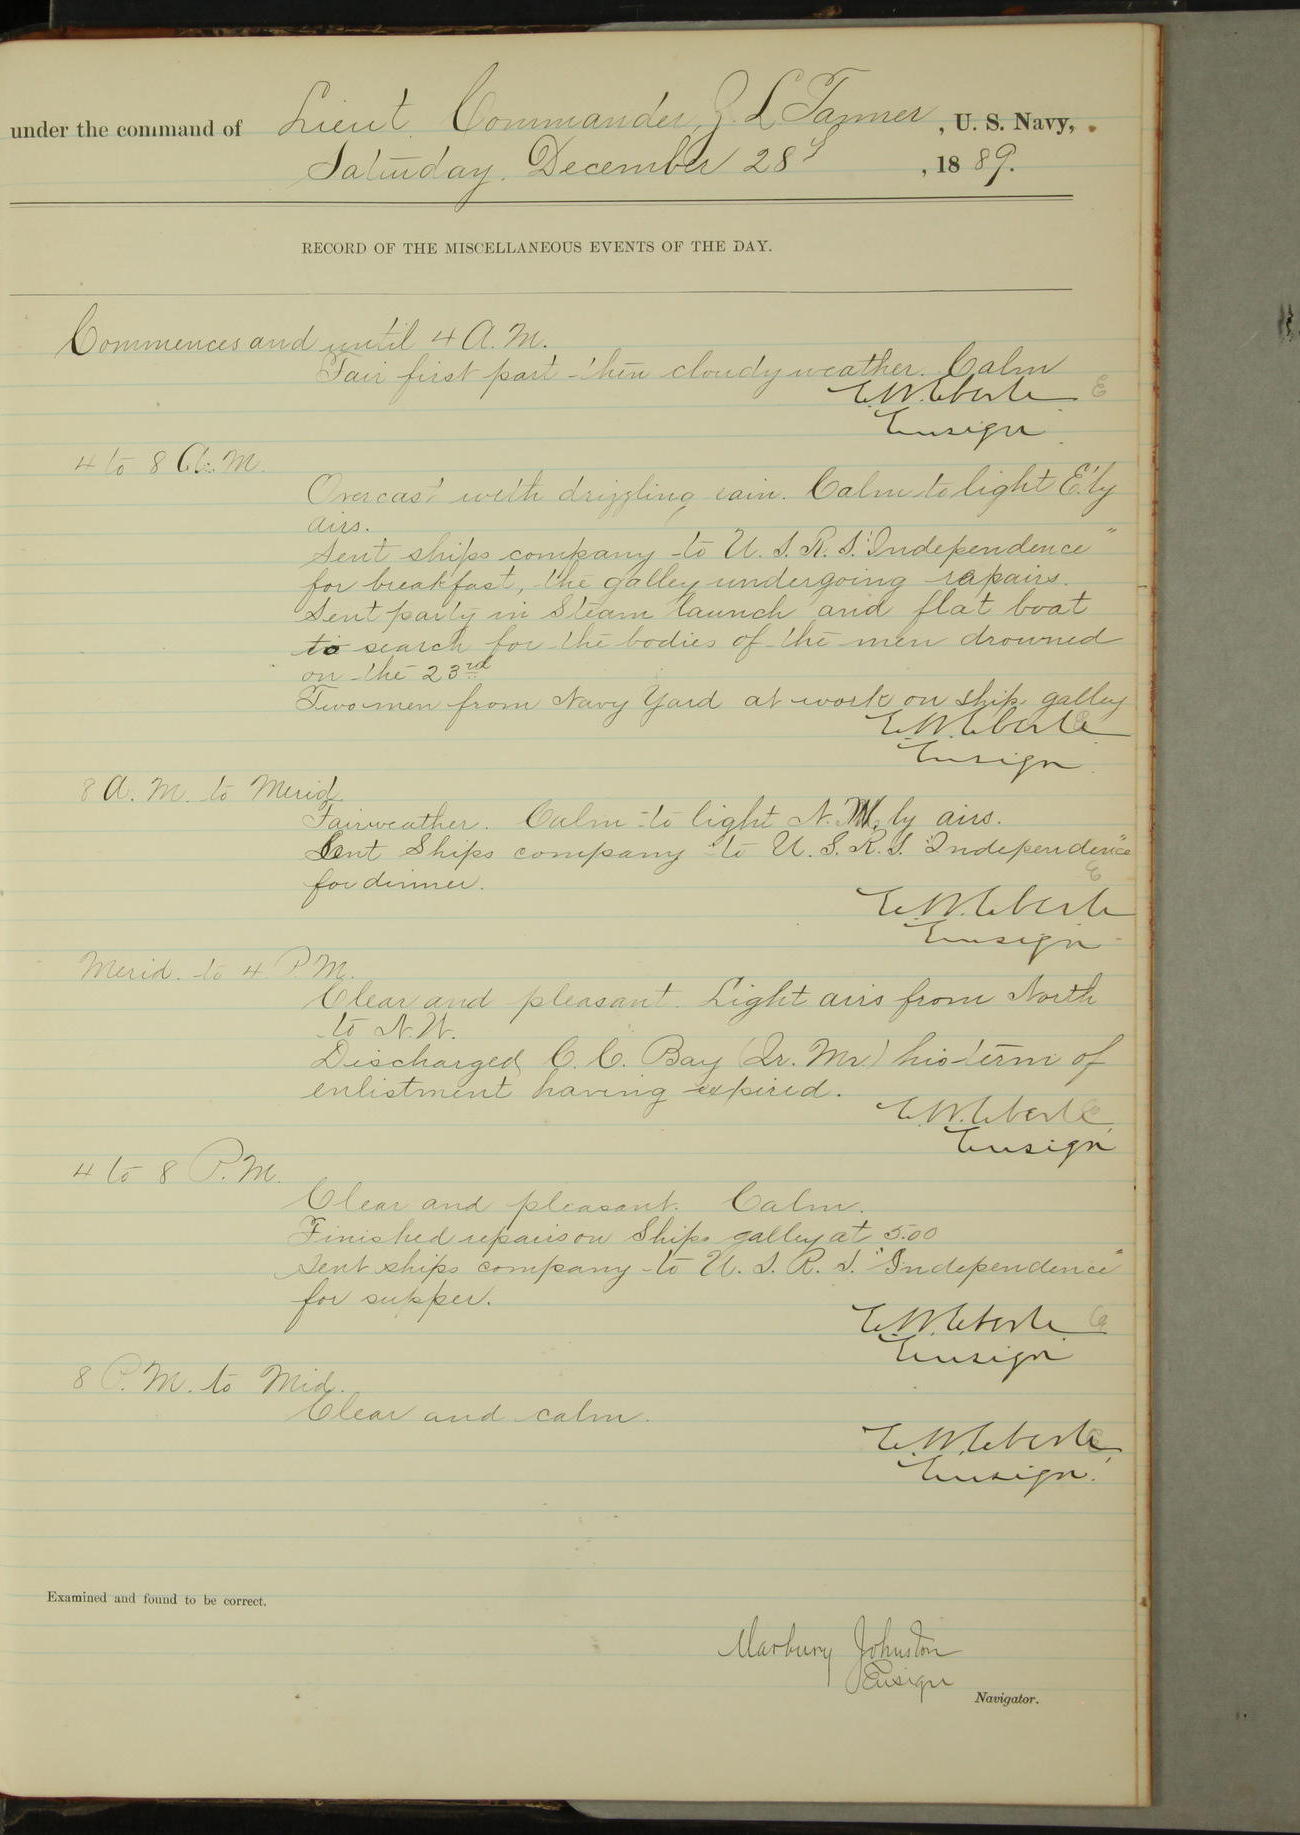 under the command of Lieut. Commander, Z. L. Tanner, U. S. Navy,
Saturday, December 28, 1889.
RECORD OF THE MISCELLANEOUS EVENTS OF THE DAY.
Commences and until 4 A.M.
Fair first part - then cloudy weather. Calm
E. W. Eberle E
Ensign
4 to 8 A.M.
Overcast with drizzling rain. Calm to light E'ly
airs.
Sent ships company to U. S. R. S. "Independence"
for breakfast, the galley undergoing repairs.
Sent party in Steam launch and flat boat
to search for the bodies of the men drowned
on the 23rd
Two men from Navy Yard at work on ship galley
E. W. Eberle
Ensign
8 A.M. to Merid.
Fair weather. Calm to light N.W.ly airs.
Sent Ships company to U. S. R. S. "Independence"
for dinner.
E. W. Eberle
Ensign
Merid. to 4 P.M.
Clear and pleasant. Light airs from North
to N.W.
Discharged C. C. Bay (Qr. Mr.) his term of
enlistment having expired.
E. W. Eberle,
Ensign
4 to 8 P.M.
Clear and pleasant. Calm.
Finished repairs on Ships galley at 5.00
Sent ships company to U. S. R. S. "Independence"
for supper.
E. W. Eberle
Ensign
8 P.M. to Mid.
Clear and calm.
E. W. Eberle,
Ensign.
Examined and found to be correct.
Marbury Johnston
Ensign
Navigator.